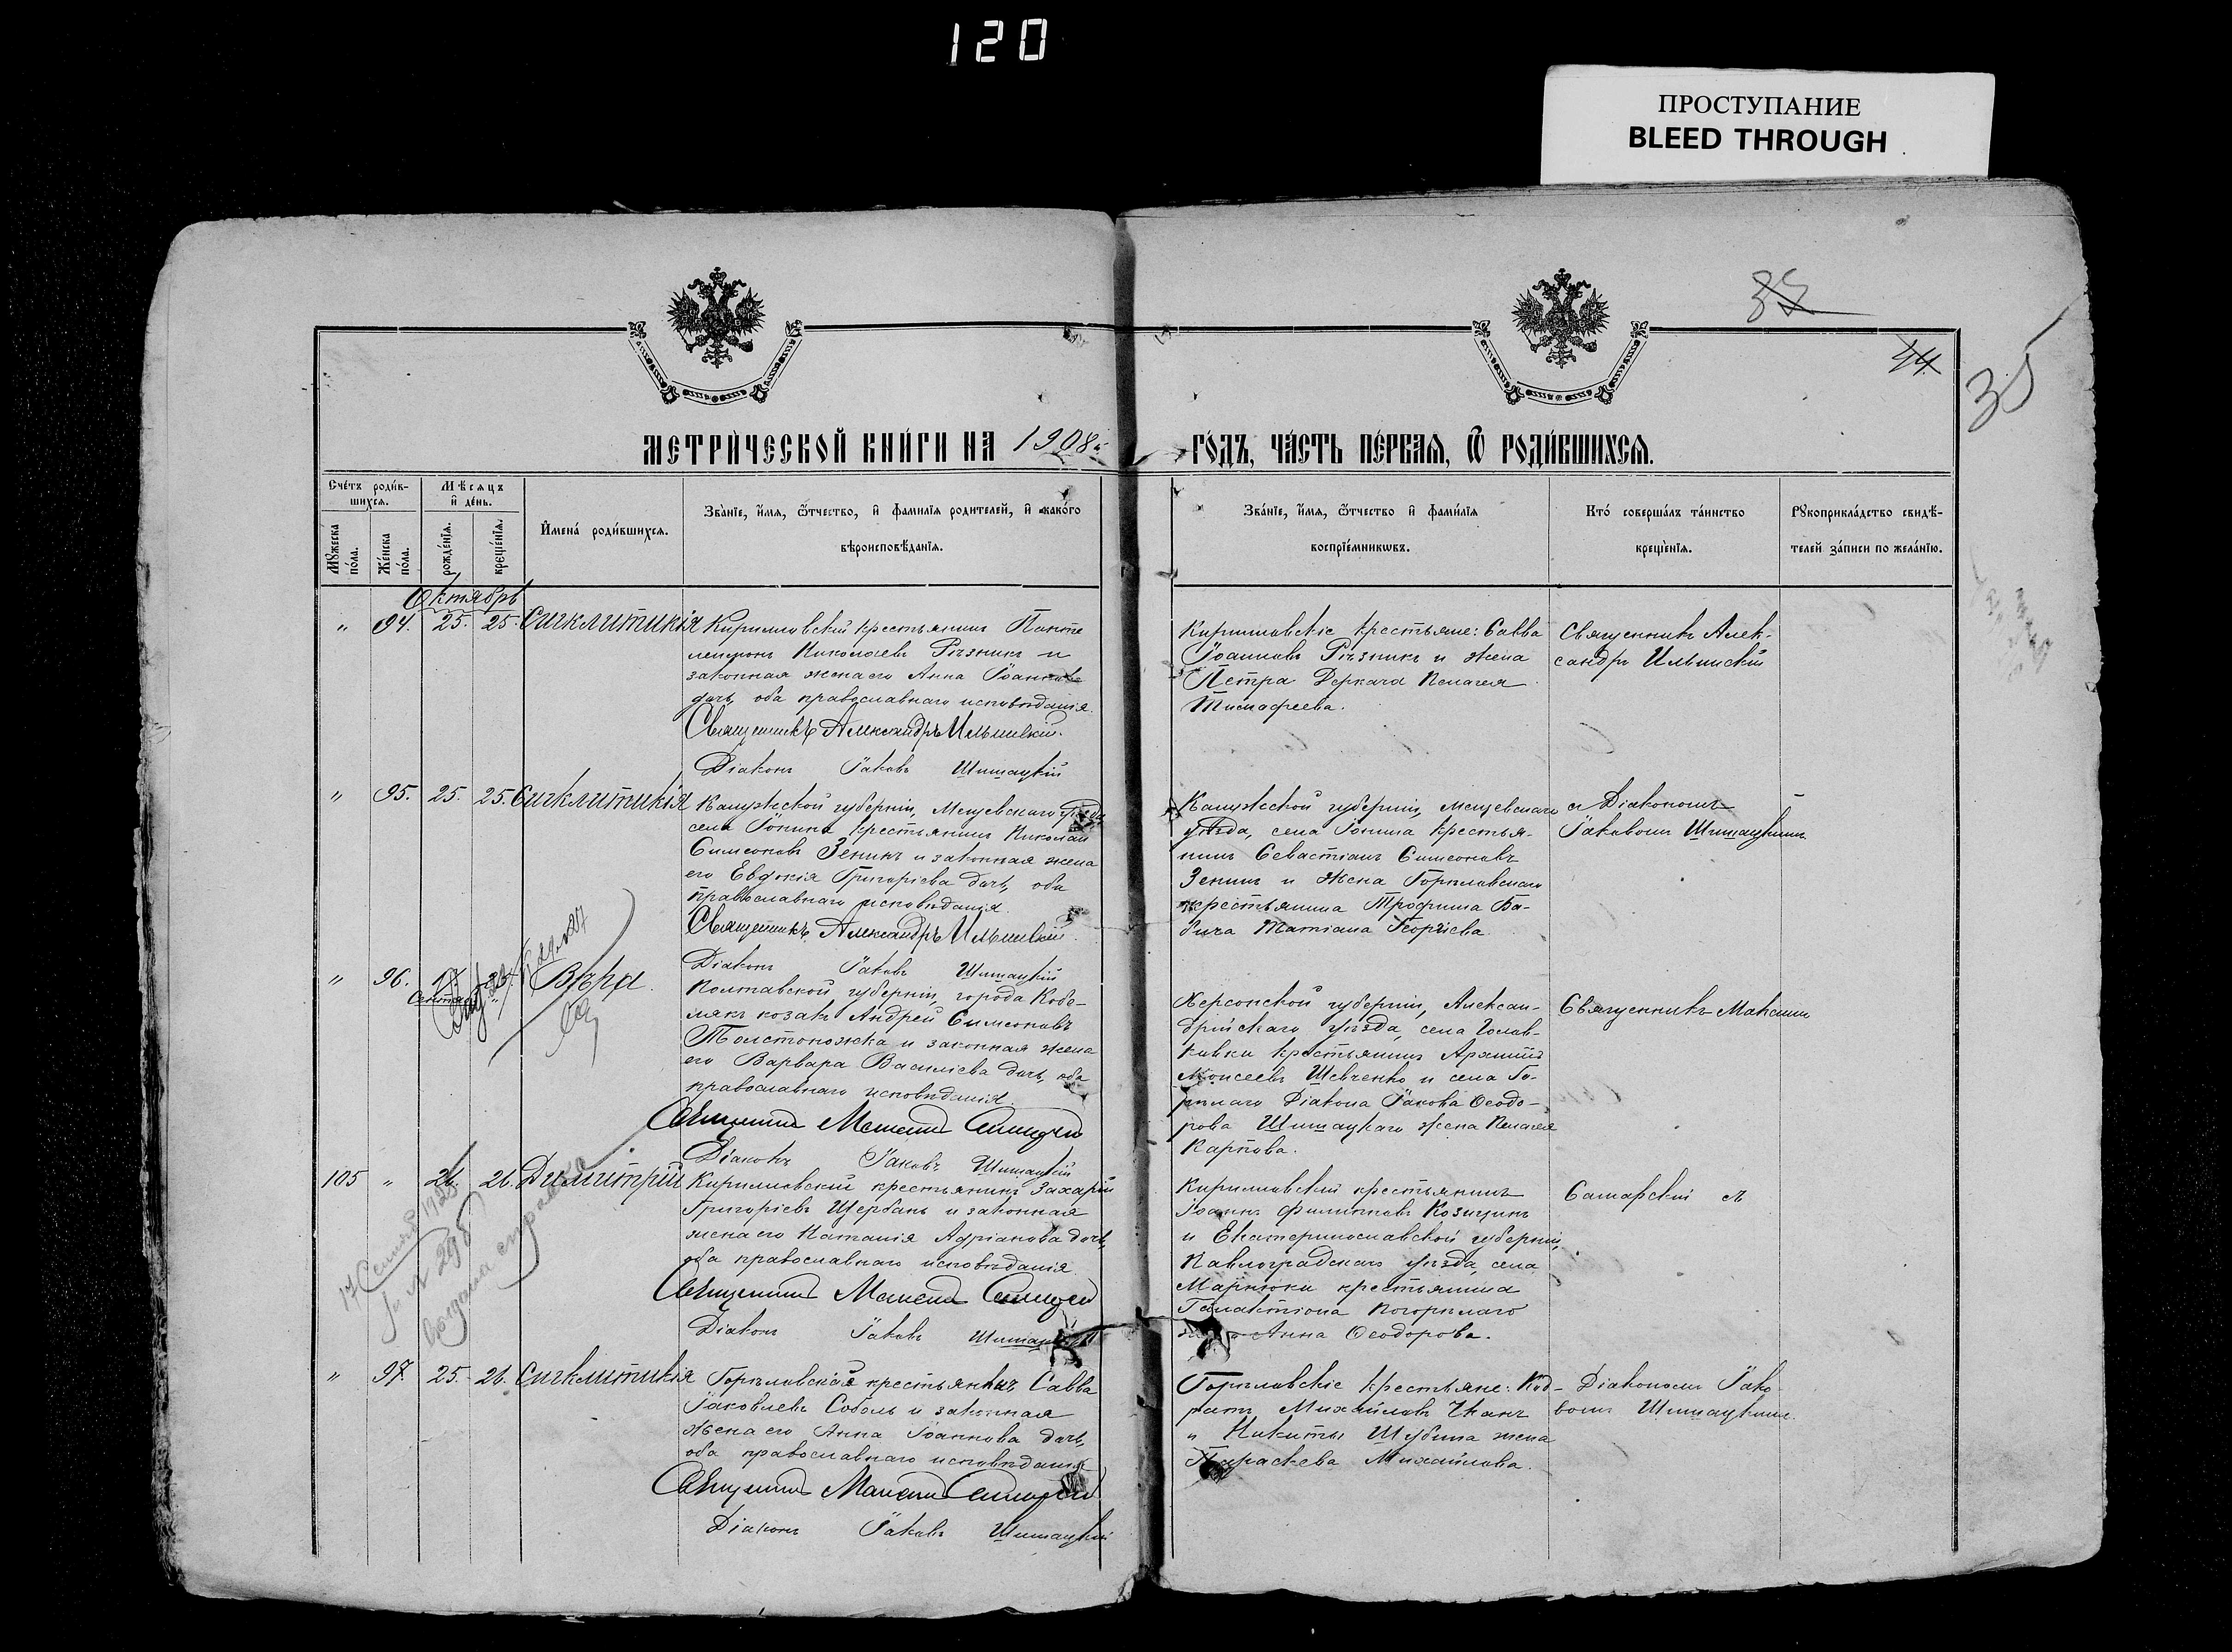 120
ПРОСТУПАНИЕ
BLEED THROUGH
37
44
35
МЕТРИ́ЧЕСКОЙ КНИ́ГИ НА 1908 г.
ГО́ДЪ, ЧА́СТЬ ПЕ́РВАЯ, Ѿ РОДИ́ВШИХСЯ.
Сче́тъ роди́в-
шихся.
Мѣсяцъ
и де́нь.
Му́жеска по́ла.
Же́нска по́ла.
рожде́нїя.
креще́нїя.
Имена̀ роди́вшихся.
Зва́нїе, и́мя, ѻ́тчество, и фами́лїя родителей, и како́го
вѣроисповѣ́данїя.
Зва́нїе, и́мя, ѻ́тчество и фами́лїя
воспрїе́мникѡвъ.
Кто́ соверша́лъ та́инство
креще́нїя.
Рꙋкоприкла́дство свидѣ́-
телей за́писи по жела́нїю.
Октябрь
" 94. 25. 25. Сигклитикія
Кирилловскій крестьянинъ Панте
леимонъ Николаевъ Рѣзникъ и
законная жена его Анна Іоаннова
дочь, оба православнаго исповѣданія.
Священникъ Александръ Ильинскій.
Діаконъ Іаковъ Шишацкій
Кирилловскіе крестьяне: Савва
Іоанновъ Рѣзникъ и жена
Петра Деркача Пелагея
Тимофеева.
Священникъ Алек-
сандръ Ильинскій
" 95. 25. 25. Сигклитикія
Калужской губерніи, Мещевскаго уѣзда,
села Іонина крестьянинъ Николай
Симеоновъ Зенинъ и законная жена
его Евдокія Григоріева дочь, оба
православнаго исповѣданія.
Священникъ Александръ Ильинскій.
Діаконъ Іаковъ Шишацкій
Калужской губерніи, Мещевскаго
уѣзда, села Іонина крестья-
нинъ Севастіанъ Симеоновъ
Зенинъ и жена Горѣловскаго
крестьянина Трофима Ба-
бича Татіана Георгіева.
съ Діакономъ
Іаковомъ Шишацкимъ
" 96. Вѣра.
Полтавской губерніи, города Кобе-
лякъ козакъ Андрей Симеоновъ
Толстоножка и законная жена
его Варвара Василіева дочь, оба
православнаго исповѣданія.
Священникъ Максимъ
Діаконъ Іаковъ Шишацкій
Херсонской губерніи, Алексан-
дрійскаго уѣзда, села Голов-
ковки крестьянинъ Архиппъ
Моисеевъ Шевченко и села Го-
рѣлаго Діакона Іакова Ѳеодо-
рова Шишацкаго жена Пелагея
Карпова.
Священникъ Максимъ
105 " 26. 26. Димитрій
17 1925
№ 298
выдана справка
Кирилловскій крестьянинъ Захарій
Григоріевъ Щербань и законная
жена его Наталія Адріанова дочь,
оба православнаго исповѣданія.
Священникъ Максимъ
Діаконъ Іаковъ Шишацкій
Кирилловскій крестьянинъ
Іоаннъ Филипповъ Козицинъ
и Екатеринославской губерніи,
Павлоградскаго уѣзда, села
крестьянина
Галактіона Погорѣлаго
Анна Ѳеодорова.
Самарскій
" 97. 25. 26. Сигклитикія
Горѣловскій крестьянинъ Савва
Іаковлевъ Соболь и законная
жена его Анна Іоаннова дочь,
оба православнаго исповѣданія
Священникъ Максимъ
Діаконъ Іаковъ Шишацкій
Горѣловскіе крестьяне: Код-
ратъ Михайловъ Чканъ
и Никиты Шубина жена
Параскева Михайлова.
Діакономъ Іако-
вомъ Шишацкимъ.